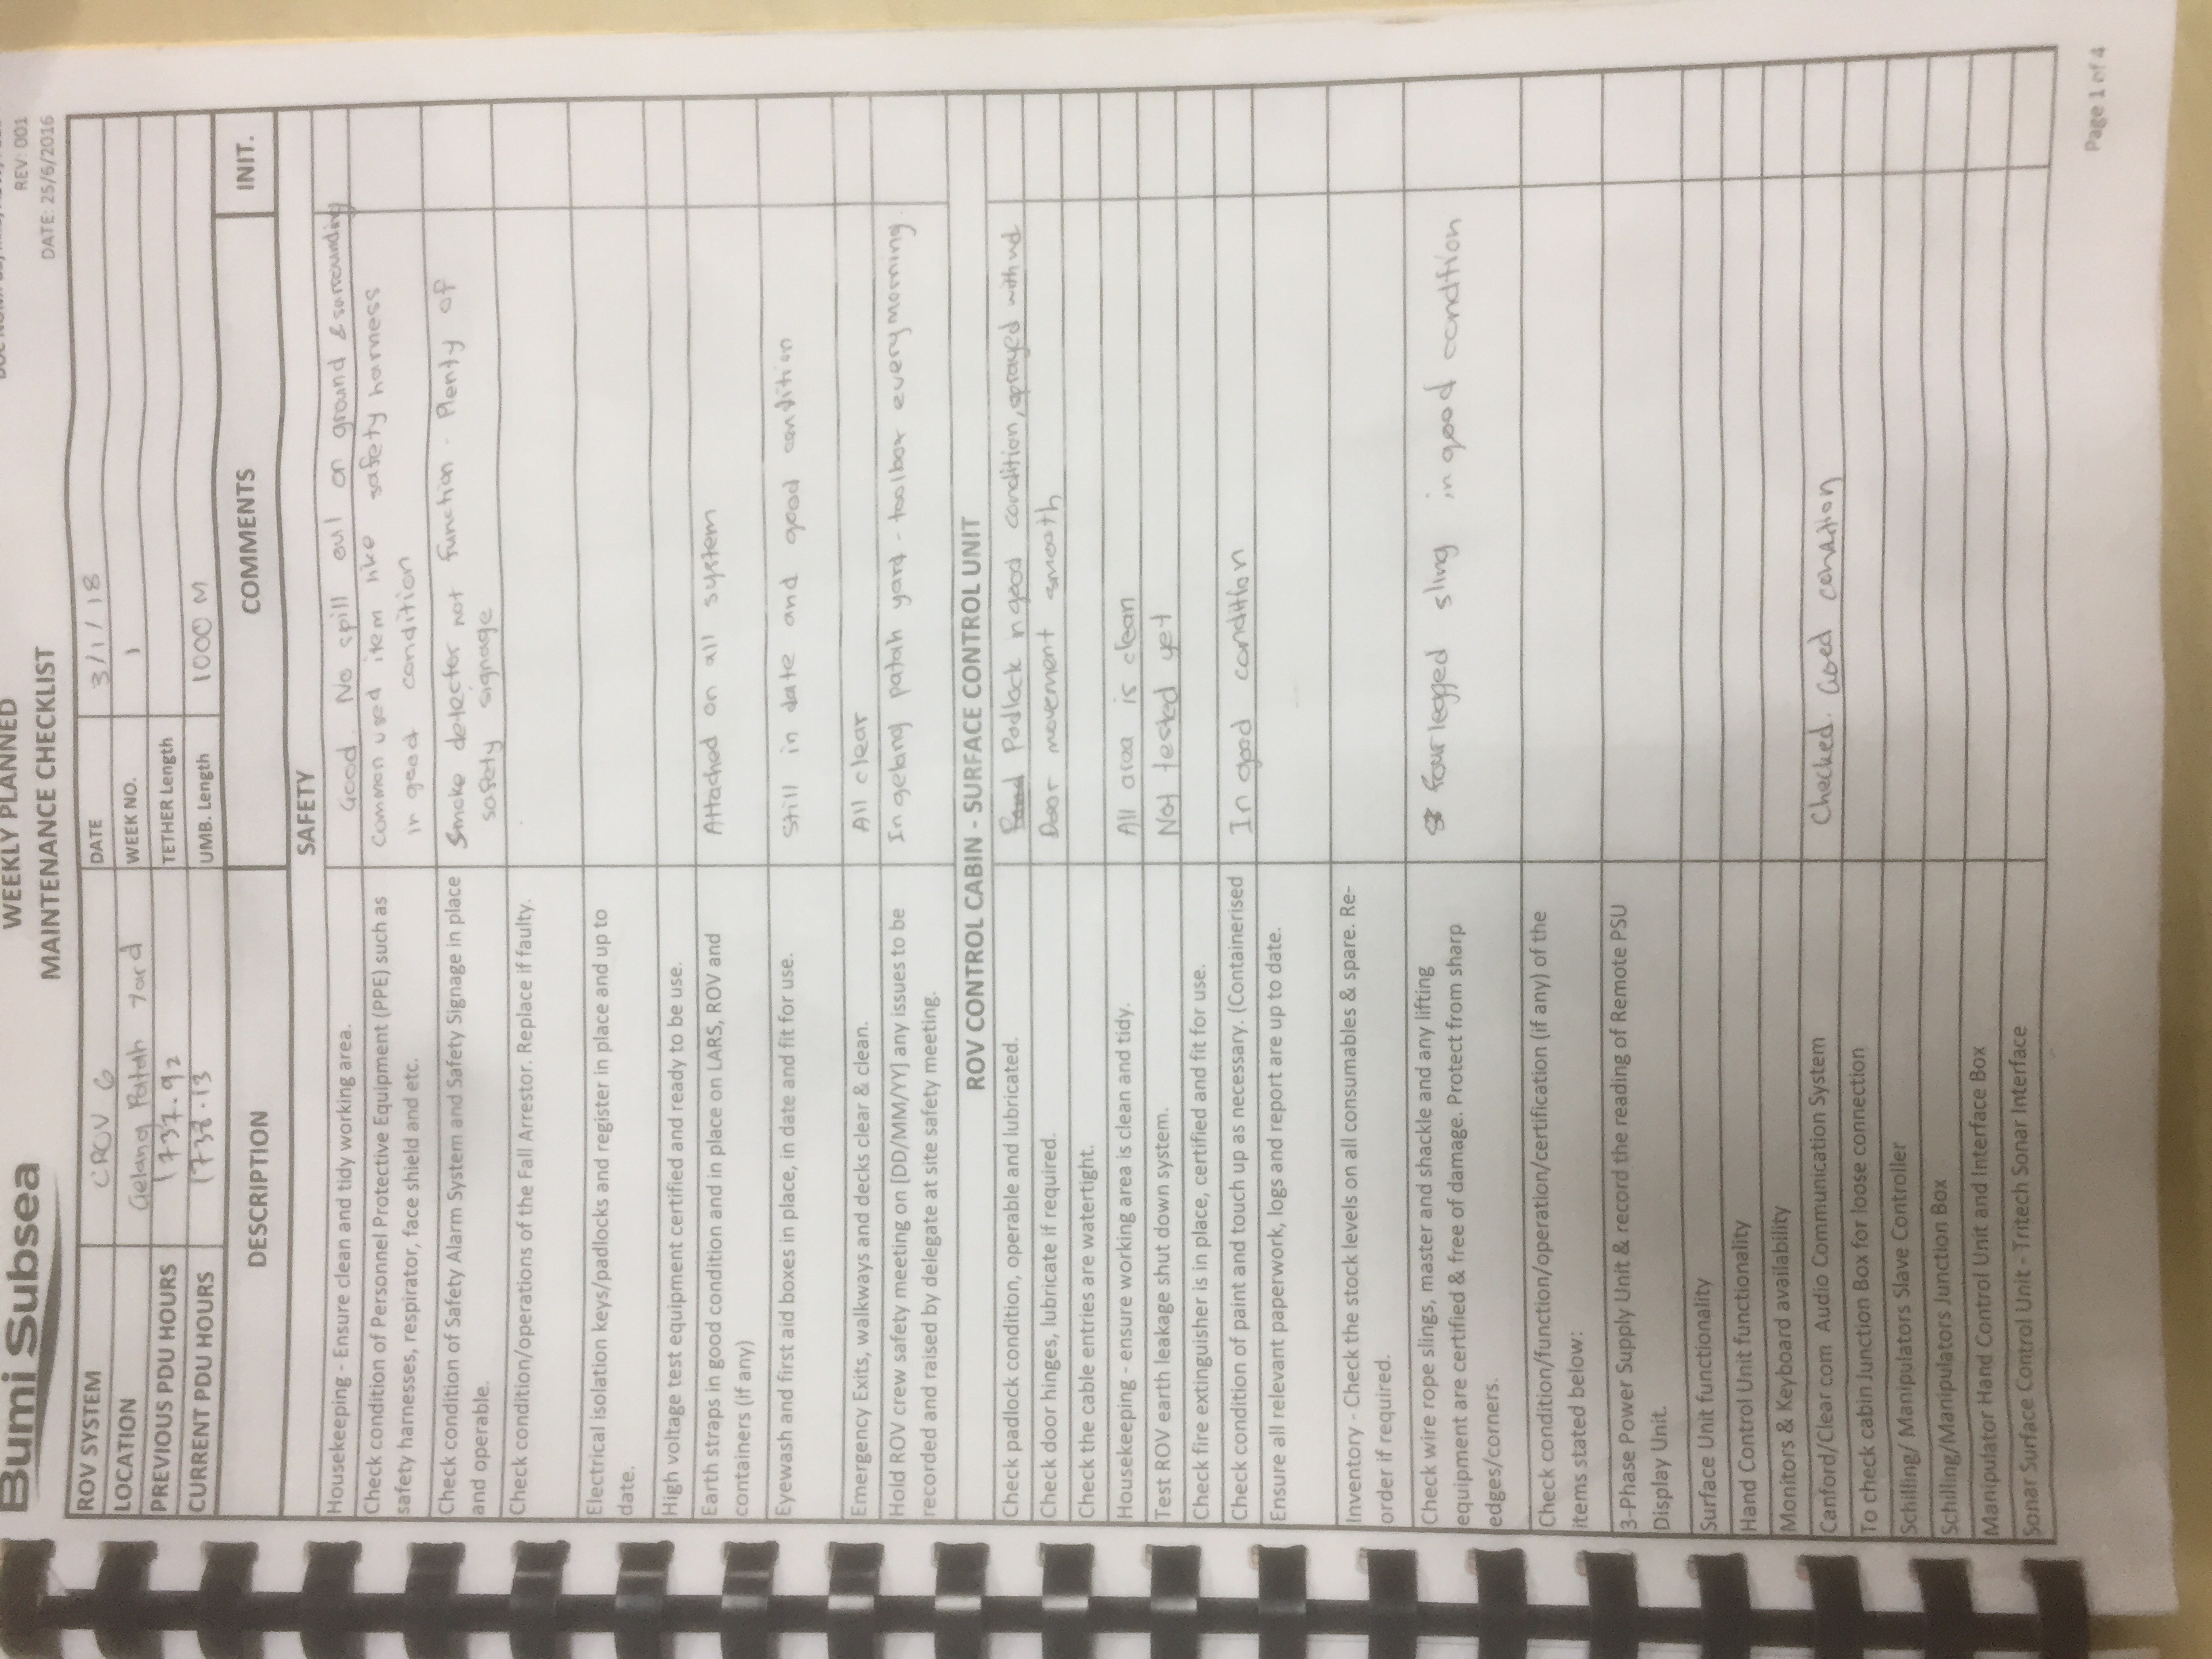 Bumi Subsea
WEEKLY PLANNED
MAINTENANCE CHECKLIST
REV: 001
DATE: 25/6/2016
ROV SYSTEM CROV 6 DATE 3/1/18
LOCATION Gelang Patah Yard WEEK NO. 1
PREVIOUS PDU HOURS 1737.92 TETHER Length
CURRENT PDU HOURS 1738.13 UMB. Length 1000 M
DESCRIPTION COMMENTS INIT.
SAFETY
Housekeeping - Ensure clean and tidy working area. Good. No spill on ground & surrounding
Check condition of Personnel Protective Equipment (PPE) such as common used item like safety harness
safety harnesses, respirator, face shield and etc. in good condition
Check condition of Safety Alarm System and Safety Signage in place Smoke detector not function. Plenty of
and operable. safety signage
Check condition/operations of the Fall Arrestor. Replace if faulty.
Electrical isolation keys/padlocks and register in place and up to
date.
High voltage test equipment certified and ready to be use.
Earth straps in good condition and in place on LARS, ROV and Attached on all system
containers (if any)
Eyewash and first aid boxes in place, in date and fit for use. Still in date and good condition
Emergency Exits, walkways and decks clear & clean. All clear
Hold ROV crew safety meeting on [DD/MM/YY] any issues to be In gelang patah yard - toolbox every morning.
recorded and raised by delegate at site safety meeting.
ROV CONTROL CABIN - SURFACE CONTROL UNIT
Check padlock condition, operable and lubricated. Padlock in good condition, sprayed with wd
Check door hinges, lubricate if required. Door movement smooth
Check the cable entries are watertight.
Housekeeping - ensure working area is clean and tidy. All area is clean
Test ROV earth leakage shut down system. Not tested yet
Check fire extinguisher is in place, certified and fit for use.
Check condition of paint and touch up as necessary. (Containerised In good condition
Ensure all relevant paperwork, logs and report are up to date.
Inventory - Check the stock levels on all consumables & spare. Re-
order if required.
Check wire rope slings, master and shackle and any lifting four legged sling in good condtion
equipment are certified & free of damage. Protect from sharp
edges/corners.
Check condition/function/operation/certification (if any) of the
items stated below:
3-Phase Power Supply Unit & record the reading of Remote PSU
Display Unit.
Surface Unit functionality
Hand Control Unit functionality
Monitors & Keyboard availability
Canford/Clear com Audio Communication System Checked. Good condition
To check cabin Junction Box for loose connection
Schilling/ Manipulators Slave Controller
Schilling/Manipulators Junction Box
Manipulator Hand Control Unit and Interface Box
Sonar Surface Control Unit - Tritech Sonar Interface
Page 1 of 4